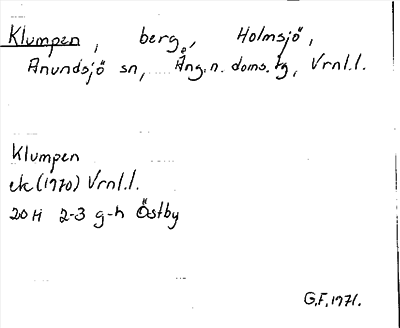 Klumpen, berg, Holmsjö,
Anundsjö sn, Ång.n. doms.tg, Vrnl.l.
Klumpen
ek (1970) Vrnl.l.
20H 2-3 g-h Östby
G.F. 1971.